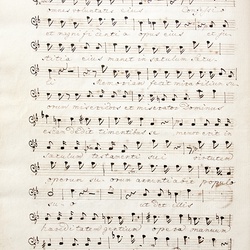 et magnificentia opus ejus et ju
stitia ejus manet in saeculum saeculi
memoriam fecit mirabilium su
orum misericors et miserator Dominus
escam dedit timentibus se memor erit in
saeculum testamenti sui virtutem
operum suorum annuntiabit populo
suo ut det illis
haereditatem gentium opera manuum